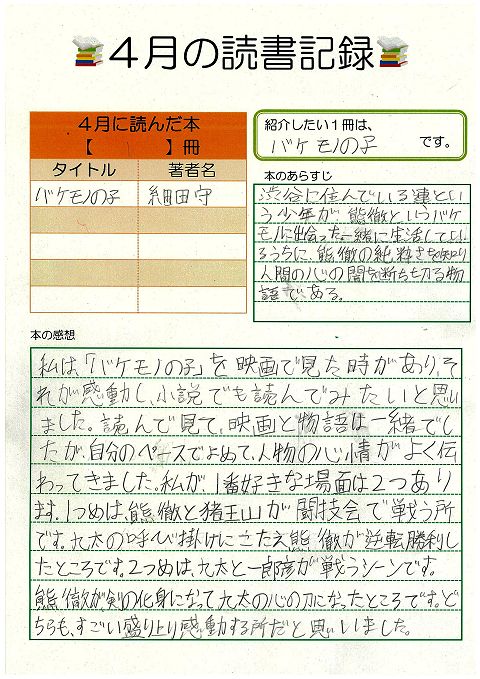 4月の読書記録
4月に読んだ本
【 1 】冊
タイトル 著者名
バケモノの子 細田守
紹介したい1冊は、
バケモノの子 です。
本のあらすじ
渋谷に住んでいる蓮とい
う少年が、熊徹というバケ
モノに出会った。一緒に生活してい
るうちに、熊徹の純粋さを知り
人間の心の闇を断ち切る物
語である。
本の感想
私は、「バケモノの子」を映画で見た時があり、そ
れが感動し、小説でも読んでみたいと思い
ました。読んで見て、映画と物語は一緒でし
たが、自分のペースでよめて、人物の心情がよく伝
わってきました。私が、1番好きな場面は2つあり
ます。1つめは、熊徹と猪王山が闘技会で戦う所
です。九太の呼び掛けにこたえ熊徹が逆転勝利し
たところです。2つめは、九太と一郎彦が戦うシーンです。
熊徹が剣の化身になって九太の心の刀になったところです。ど
ちらも、すごい盛り上り感動する所だと思いました。